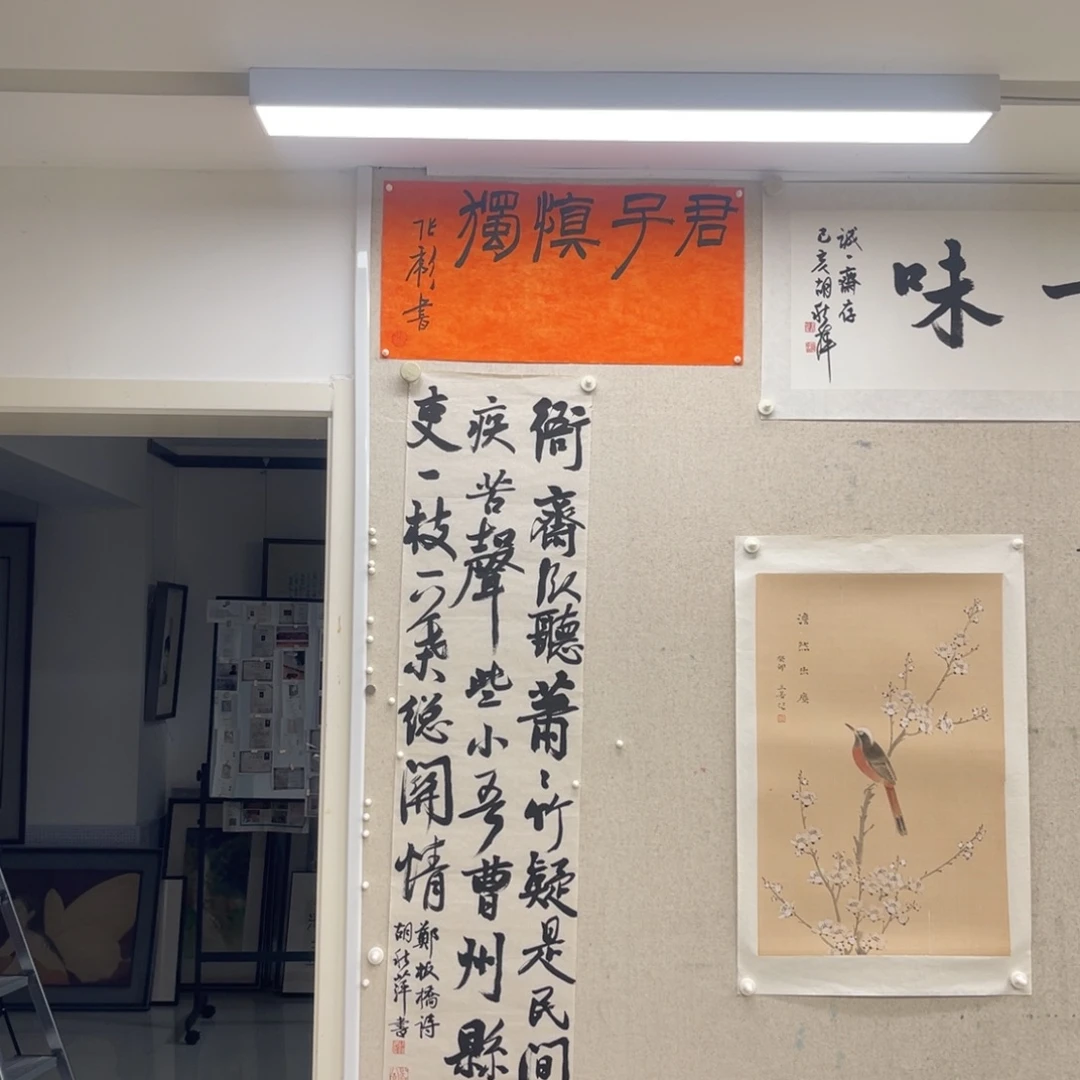 君子慎獨
書
一味
誠〻齋存
己亥胡秋萍
衙齋臥聽蕭〻竹疑是民間
疾苦聲些小吾曹州縣
吏一枝一葉總關情
鄭板橋詩
胡秋萍書
澹然出塵
癸卯